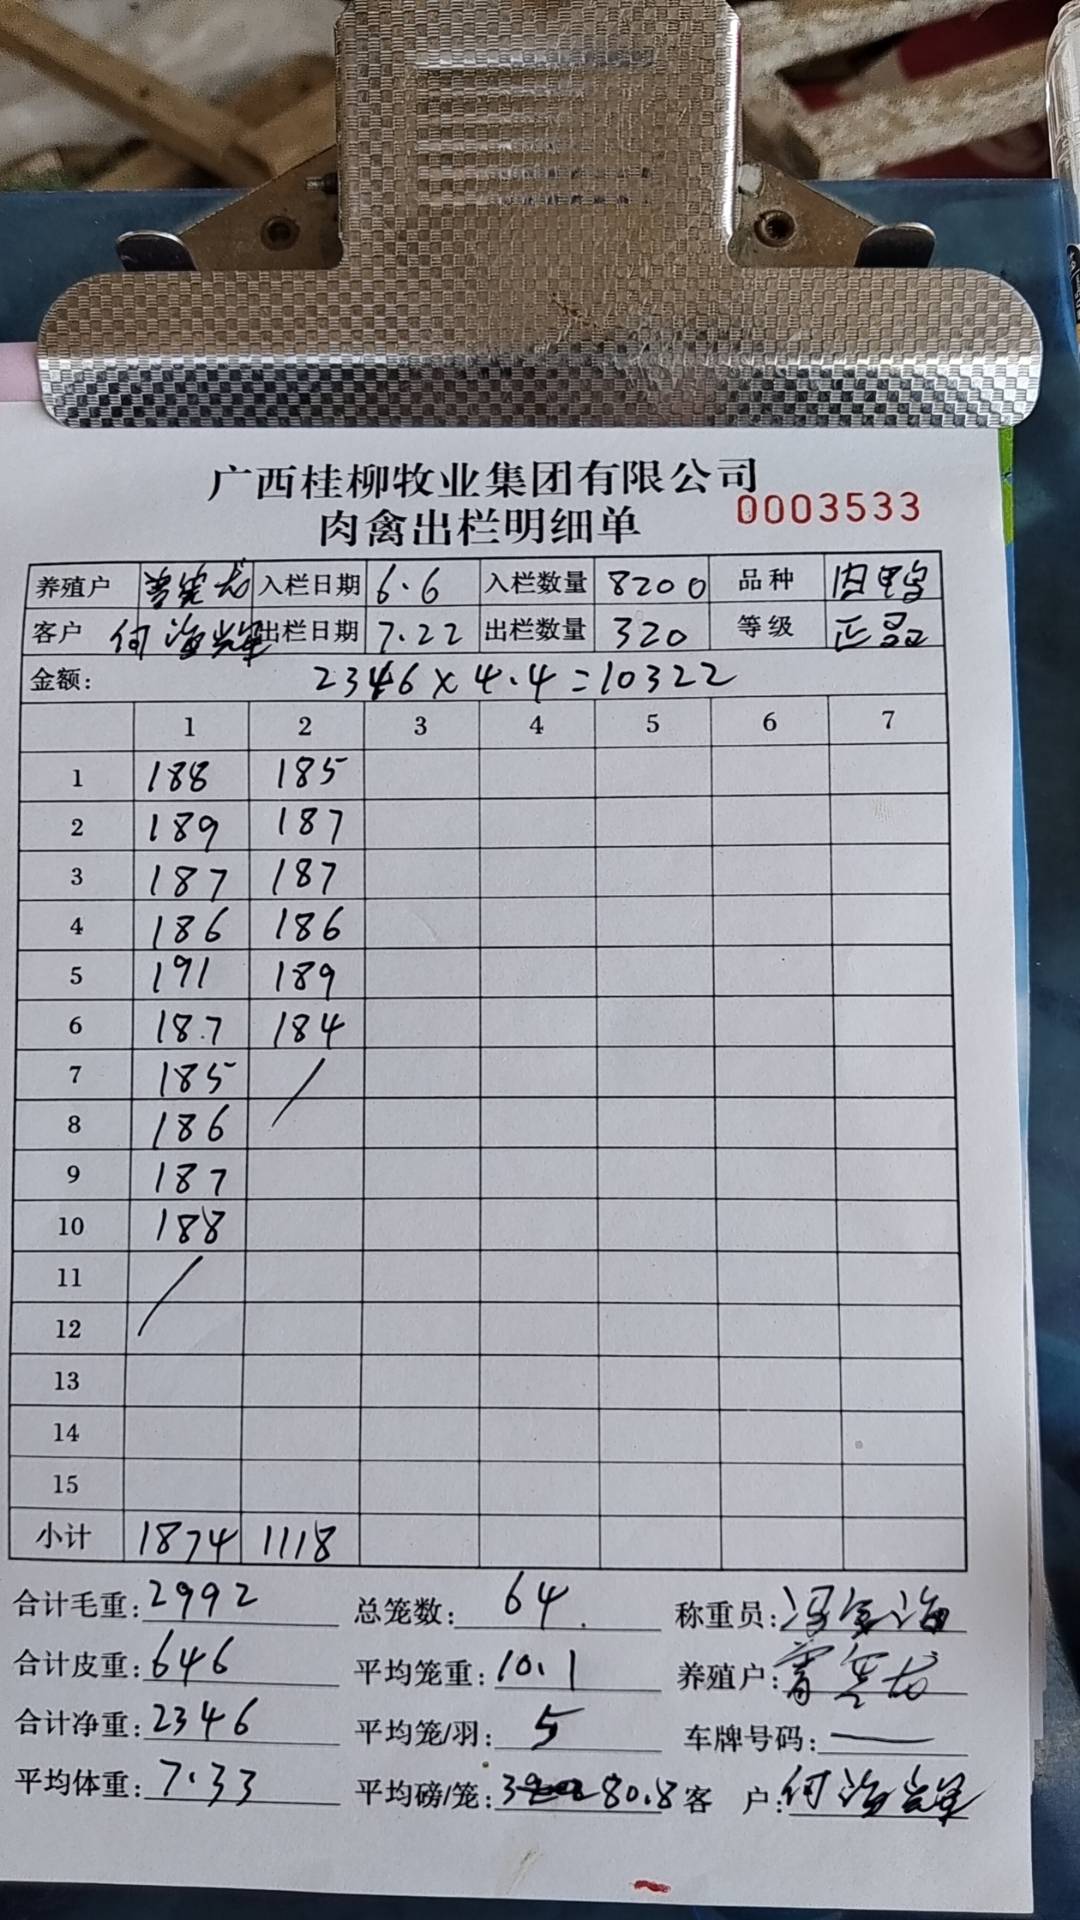 广西桂柳牧业集团有限公司
0003533
肉禽出栏明细单
养殖户 入栏日期 6.6 入栏数量 8200 品种 肉鸭
客户 何海辉 出栏日期 7.22 出栏数量 320 等级 正品
金额: 2346×4.4=10322
1 2 3 4 5 6 7
1 188 185
2 189 187
3 187 187
4 186 186
5 191 189
6 187 184
7 185 /
8 186
9 187
10 188
11 /
12
13
14
15
小计 1874 1118
合计毛重: 2992 总笼数: 64 称重员:
合计皮重: 646 平均笼重: 10.1 养殖户:
合计净重: 2346 平均笼/羽: 5 车牌号码: —
平均体重: 7.33 平均磅/笼: 80.8 客 户: 何海辉